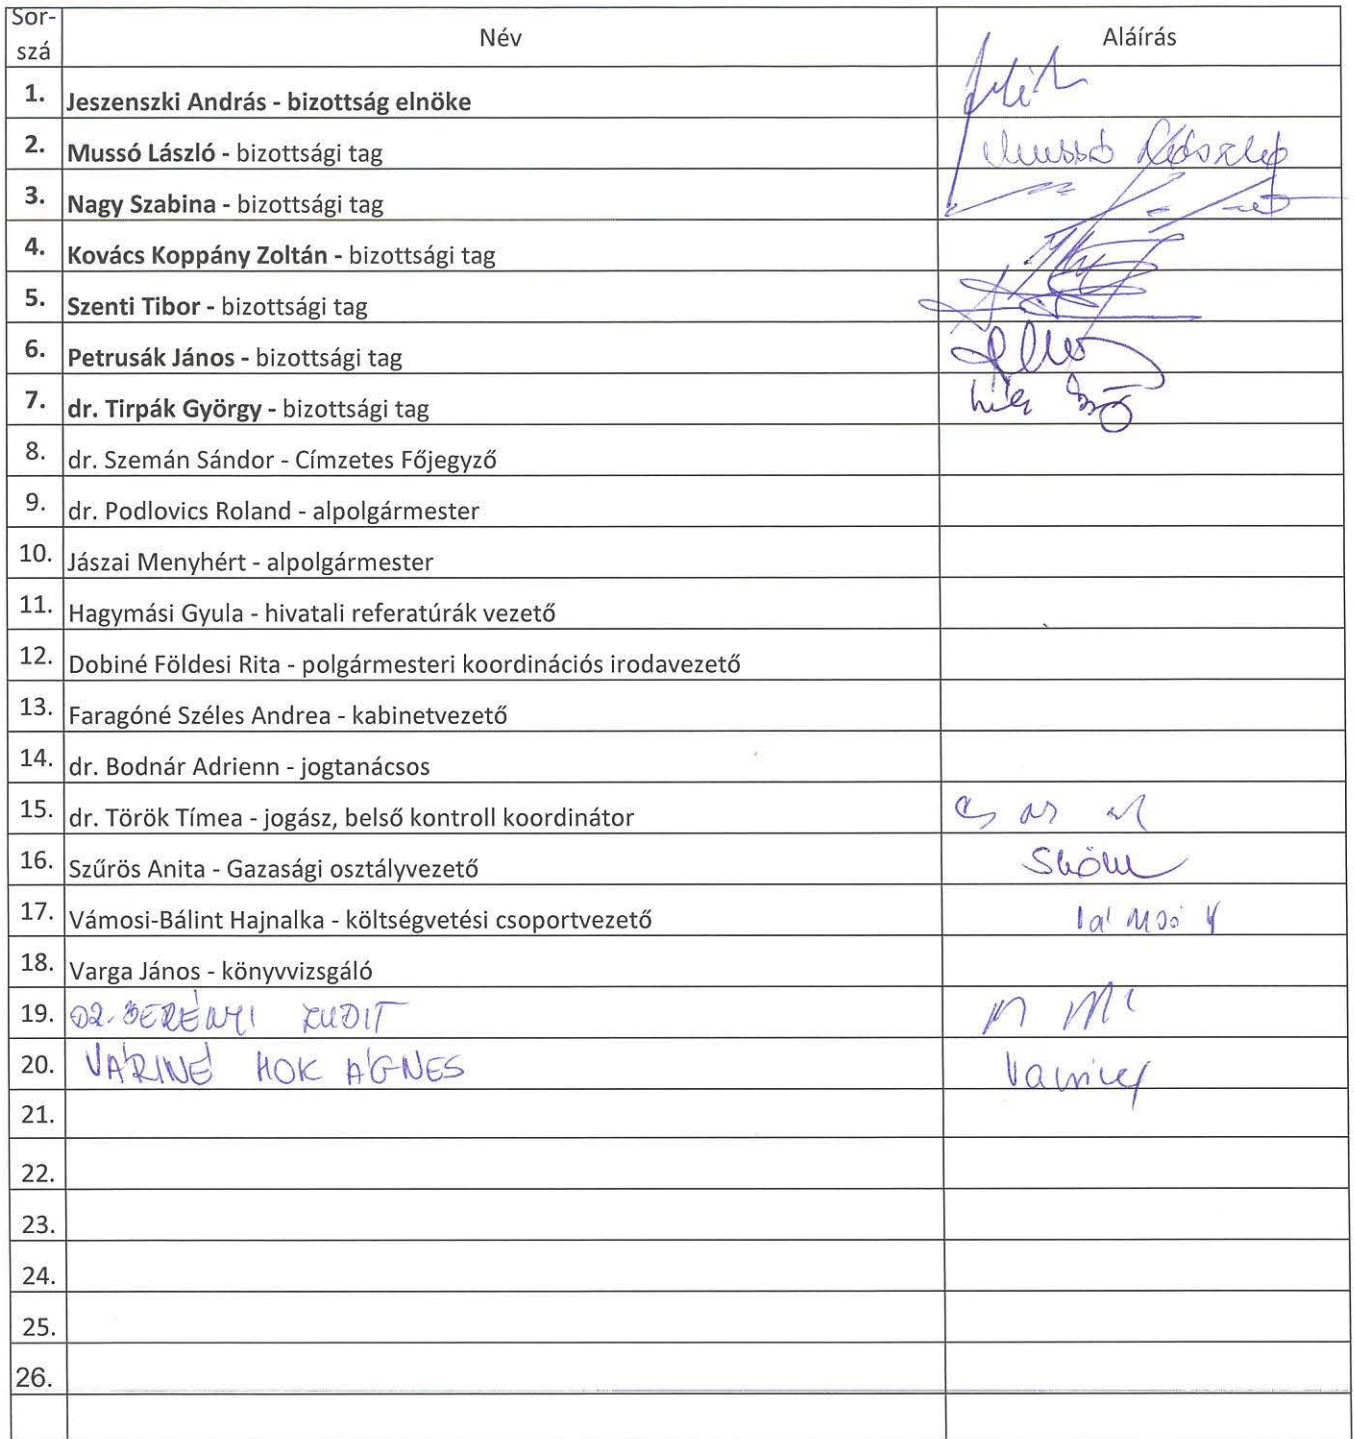 Sor-
szá
Név
Aláírás
1. Jeszenszki András - bizottság elnöke
2. Mussó László - bizottsági tag Mussó László
3. Nagy Szabina - bizottsági tag
4. Kovács Koppány Zoltán - bizottsági tag
5. Szenti Tibor - bizottsági tag
6. Petrusák János - bizottsági tag
7. dr. Tirpák György - bizottsági tag
8. dr. Szemán Sándor - Címzetes Főjegyző
9. dr. Podlovics Roland - alpolgármester
10. Jászai Menyhért - alpolgármester
11. Hagymási Gyula - hivatali referatúrák vezető
12. Dobiné Földesi Rita - polgármesteri koordinációs irodavezető
13. Faragóné Széles Andrea - kabinetvezető
14. dr. Bodnár Adrienn - jogtanácsos
15. dr. Török Tímea - jogász, belső kontroll koordinátor
16. Szűrös Anita - Gazasági osztályvezető
17. Vámosi-Bálint Hajnalka - költségvetési csoportvezető
18. Varga János - könyvvizsgáló
19.
20. VÁRINÉ HOK ÁGNES
21.
22.
23.
24.
25.
26.